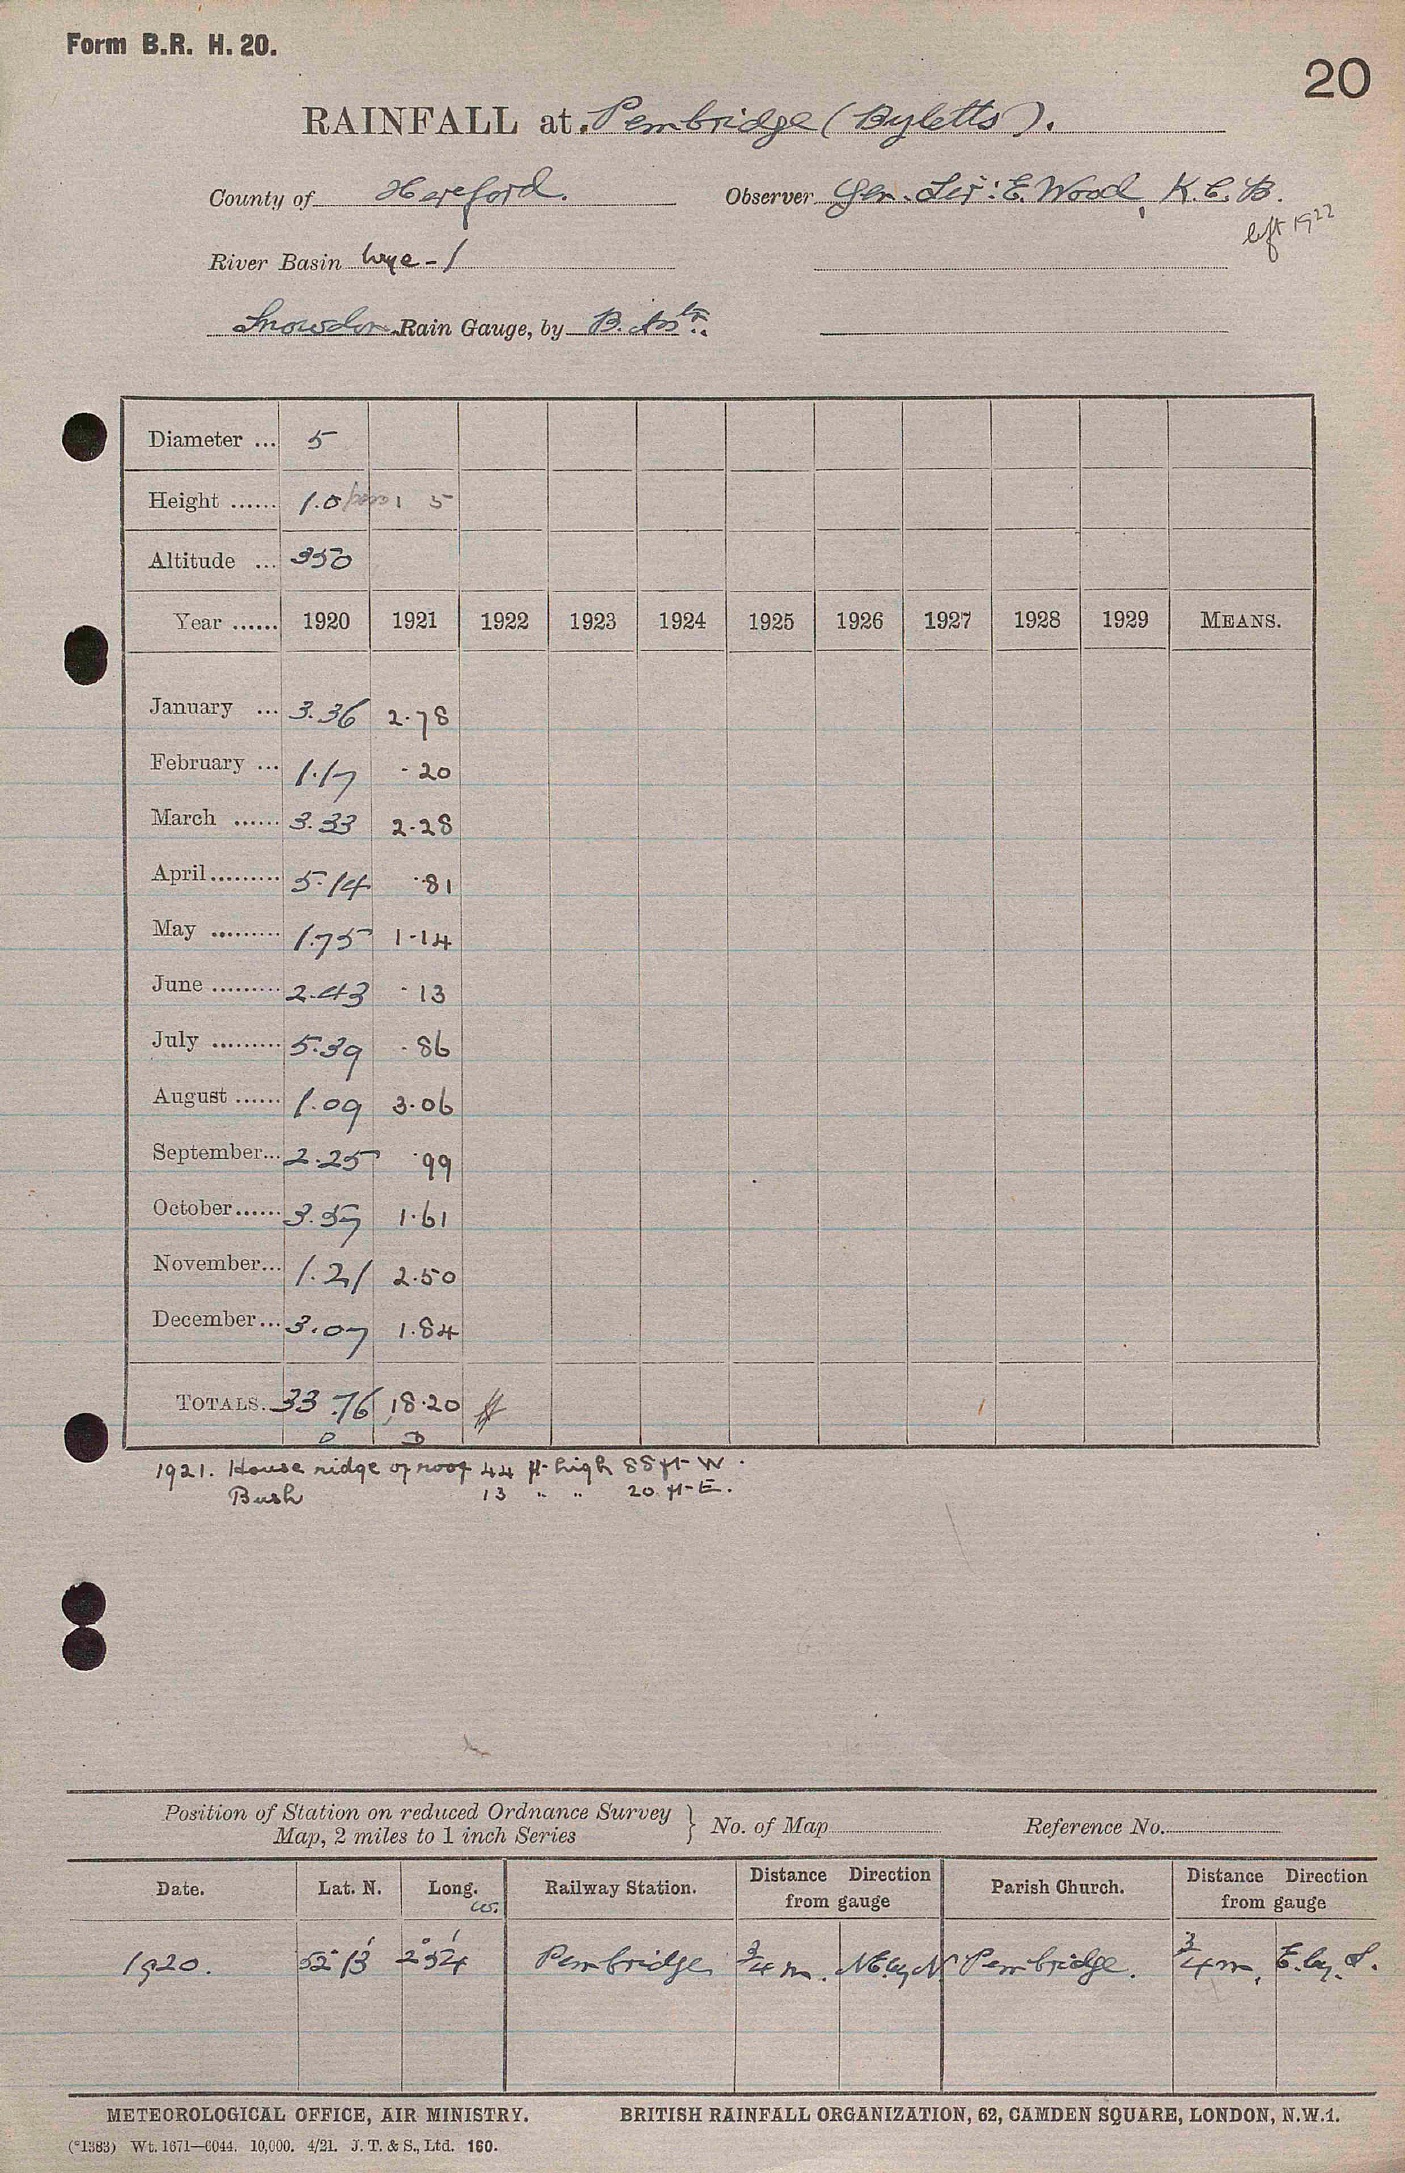 Form B.R. H. 20.
20
RAINFALL at Pembridge (Byletts).
County of Hereford. Observer Gen. Sir E. Wood, K.C.B.
left 1922
River Basin Wye - 1
Snowdon Rain Gauge, by B. Assn.
Diameter ... 5
Height ...... 1.0 1 5
Altitude ... 350
Year ...... 1920 1921 1922 1923 1924 1925 1926 1927 1928 1929 MEANS.
January ... 3.36 2.78
February ... 1.17 .20
March ...... 3.33 2.28
April ......... 5.14 .81
May ......... 1.75 1.14
June ......... 2.43 .13
July ......... 5.39 .86
August ...... 1.09 3.06
September... 2.25 .99
October...... 3.57 1.61
November... 1.21 2.50
December... 3.07 1.84
TOTALS. 33.76 18.20
D D
1921. House ridge of roof 44 ft high 88 ft W.
Bush 13 " " 20 ft E.
Position of Station on reduced Ordnance Survey
Map, 2 miles to 1 inch Series } No. of Map Reference No.
Date. Lat. N. Long. W. Railway Station. Distance Direction from gauge Parish Church. Distance Direction from gauge
1920. 52° 13' 2° 54' Pembridge 3/4 m. NE by N Pembridge. 3/4 m. E. by S.
METEOROLOGICAL OFFICE, AIR MINISTRY. BRITISH RAINFALL ORGANIZATION, 62, CAMDEN SQUARE, LONDON, N.W.1.
(*1383) Wt. 1671—6044. 10,000. 4/21. J. T. & S., Ltd. 160.